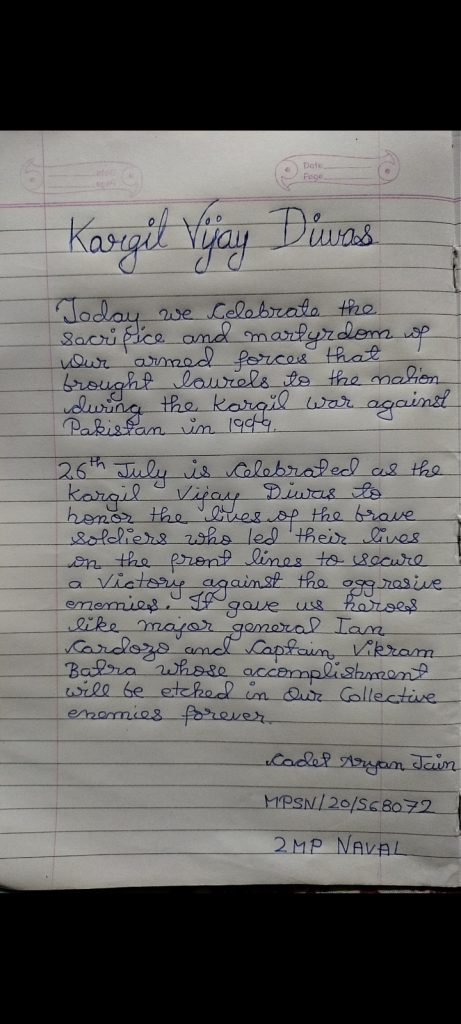 Date
Page
Kargil Vijay Diwas
Today we Celebrate the
sacrifice and martyrdom of
our armed forces that
brought laurels to the nation
during the Kargil war against
Pakistan in 1999.
26th July is celebrated as the
Kargil Vijay Diwas to
honor the lives of the brave
soldiers who led their lives
on the front lines to secure
a victory against the aggresive
enemies. It gave us heroes
like major general Ian
Cardozo and Captain Vikram
Batra whose accomplishment
will be etched in Our Collective
enemies forever.
Cadet Aryan Jain
MPSN/20/568072
2MP NAVAL